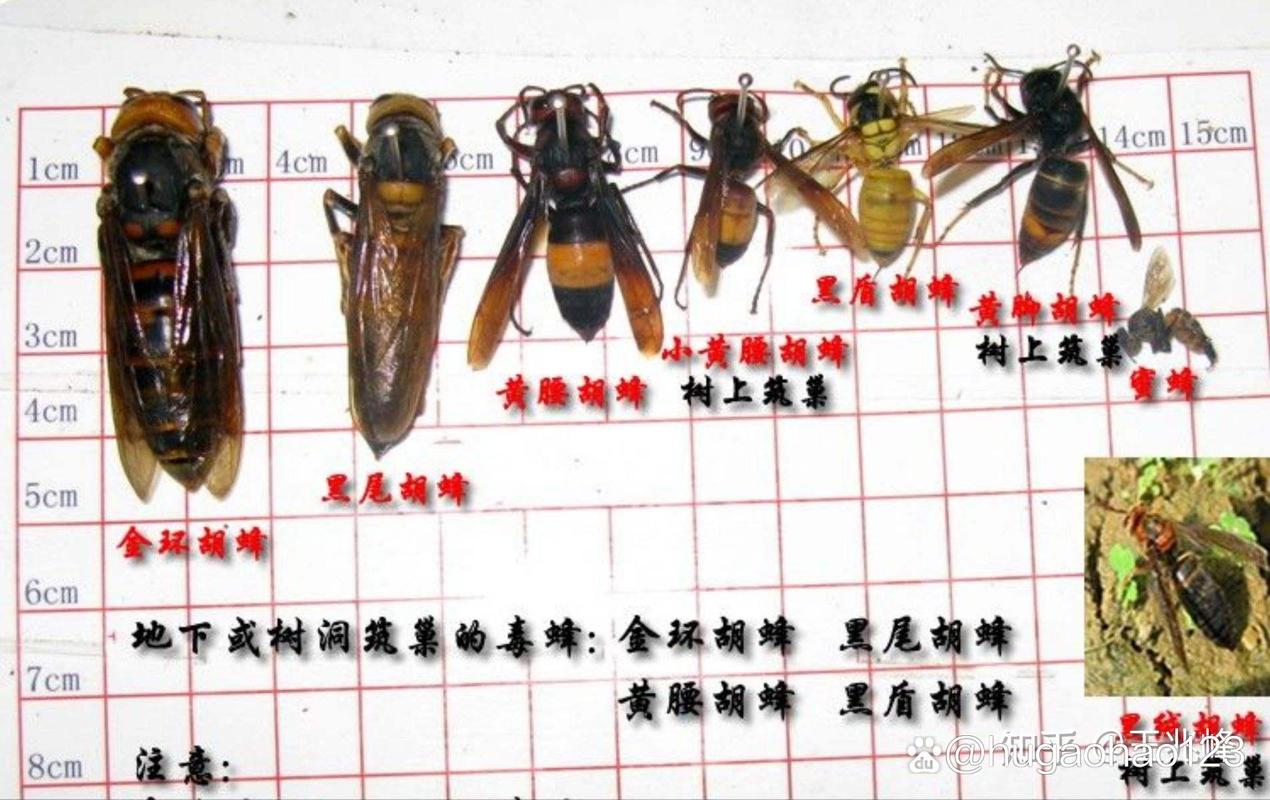 1cm
4cm
14cm
15cm
2cm
黑盾胡蜂
黄脚胡蜂
3cm
小黄腰胡蜂
树上筑巢
树上筑巢
黄腰胡蜂
树上筑巢
蜜蜂
4cm
黑尾胡蜂
5cm
金环胡蜂
6cm
地下或树洞筑巢的毒蜂：金环胡蜂 黑尾胡蜂
黄腰胡蜂 黑盾胡蜂
7cm
黑绒胡蜂
知乎
@hugaohao123
8cm
注意：
树上筑巢